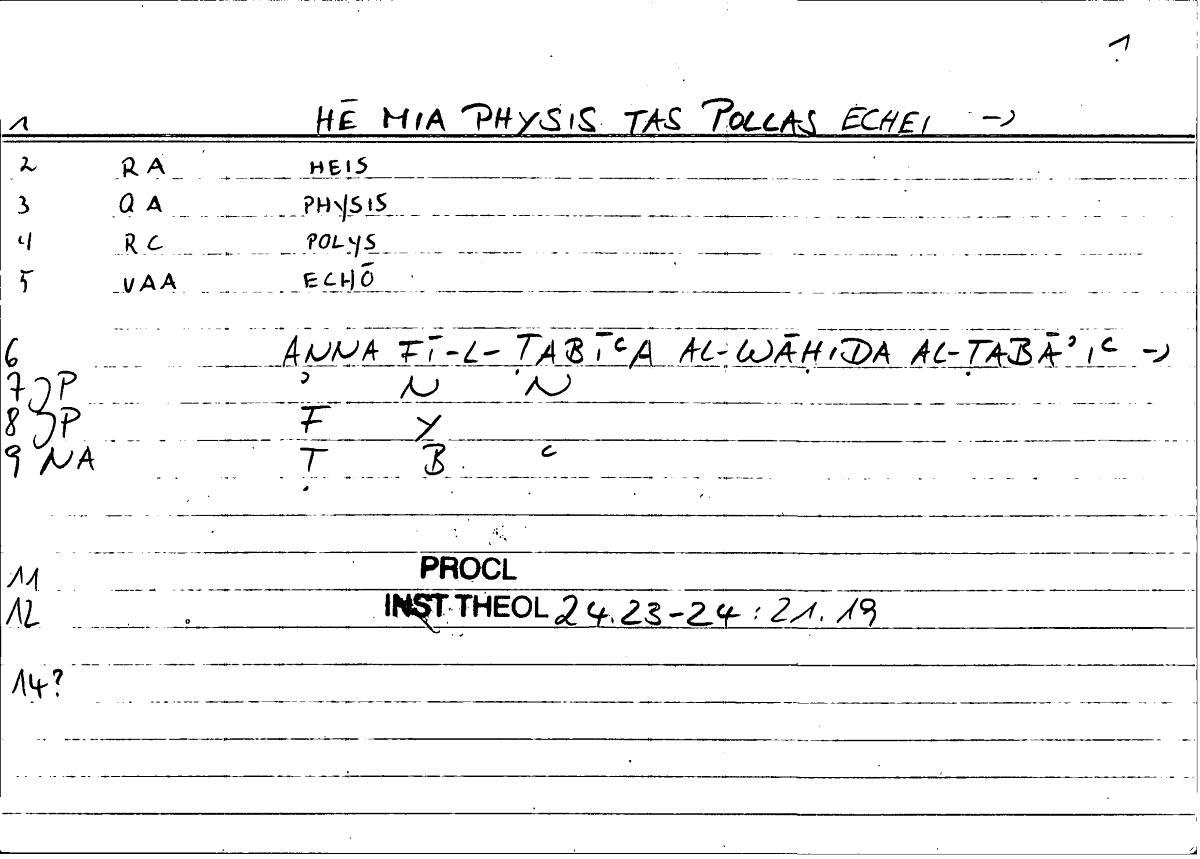 1
1 HĒ MIA PHYSIS TAS POLLAS ECHEI →
2 RA HEIS
3 QA PHYSIS
4 RC POLYS
5 VAA ECHŌ
6 ANNA FĪ-L-ṬABĪʿA AL-WĀḤIDA AL-ṬABĀʾIʿ →
7 JP ʾ N N
8 JP F Y
9 NA Ṭ B ʿ
11 PROCL
12 INST THEOL 24.23-24 : 21.19
14?